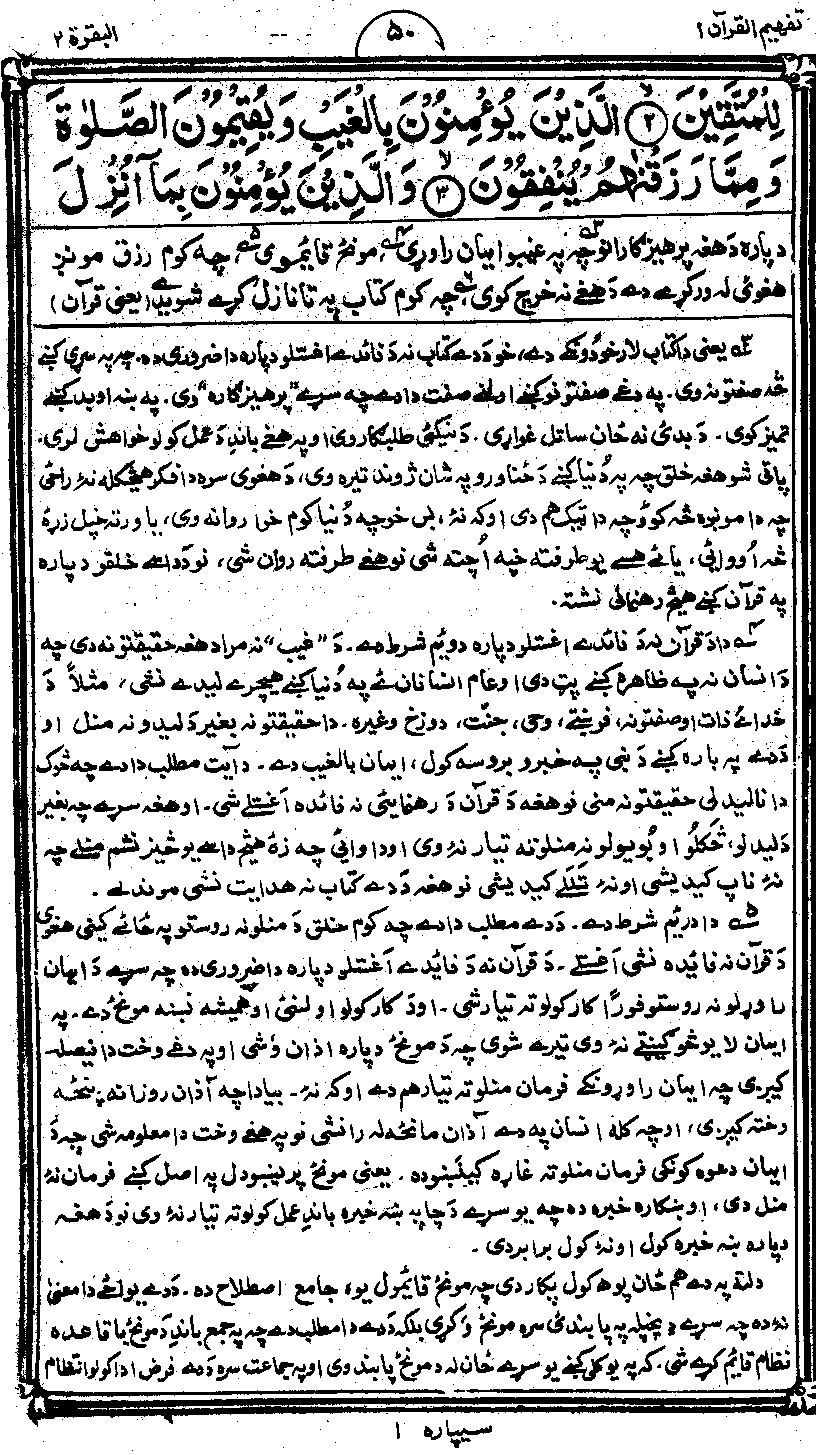 تفهیم القرآن ۱
۵۰
البقرة ۲
لِّلْمُتَّقِيْنَ ﴿۲﴾ الَّذِيْنَ يُؤْمِنُوْنَ بِالْغَيْبِ وَيُقِيْمُوْنَ الصَّلٰوةَ
وَمِمَّا رَزَقْنٰهُمْ يُنْفِقُوْنَ ﴿۳﴾ وَالَّذِيْنَ يُؤْمِنُوْنَ بِمَآ اُنْزِلَ
دپاره دَ هغه پرهیزګارانو۳ چه په غېبو ایمان راوړی۴، مونځ قایموی۵، چه کوم رزق مونږ
هغوئ له ورکړے دے دَ هغے نه خرچ کوی۶، چه کوم کتاب په تا نازل کړے شویدے (یعنی قرآن)
۳ یعنی دا کتاب لار خودونکے دے، خو دَ دے کتاب نه دَ فائدے اغستلو دپاره دا ضروری ده چه په سړی کښے
څه صفتونه وی. په دغے صفتونو کښے اولنے صفت دا دے چه سړے "پرهیزګاره" وی. په ښه او بد کښے
تمیز کوی. دَ بدئ نه ځان ساتل غواړی. دَ نیکئ طلبګار وی او په هغے باندِ دَ عمل کولو خواهش لری.
پاتی شو هغه خلق چه په دُنیا کښے دَ ځناورو په شان ژوند تیره وی، دَ هغوی سره دا فکر هیڅکله نهٔ راځی
چه دا مونږه څه کوؤ چه دا ټیک هم دی اوکه نهٔ، بس خوچه دُنیا کوم خوا روانه وی، یا ورته خپل زړهٔ
څه اووائی، یائے هسے یو طرفته خپه اُچته شی نو هغے طرفته روان شی، نو دَ داسے خلقو دپاره
په قرآن کښے هیڅ رهنمائی نشته.
۴ دا دَ قرآن نه دَ فائدے اغستلو دپاره دویم شرط دے. دَ "غیب" نه مراد هغه حقیقتونه دی چه
دَ انسان نه په ظاهره کښے پټ دی او عام انسانان ئے په دُنیا کښے هیچرے لیدے نشی، مثلاً دَ
خدائے ذات او صفتونه، فرښتے، وحی، جنّت، دوزخ وغیره. دا حقیقتونه بغیر دَ لیدو نه منل او
دَ دے په باره کښے دَ نبی په خبرو بروسه کول، ایمان بالغیب دے. دَ آیت مطلب دا دے چه څوک
دا نالیدلی حقیقتونه منی نو هغه دَ قرآن دَ رهنمایئ نه فائده اَغستلے شی. او هغه سړے چه بغیر
دَ لیدلو، څکلو او بُویولو نه منلوته تیار نهٔ وی او دا وائی چه زهٔ هیڅ داسے یو څیز نشم منلے چه
نهٔ ناپ کیدیشی او نهٔ تللے کیدیشی نو هغه دَ دے کتاب نه هدایت نشی موندے.
۵ دا دریم شرط دے. دَ دے مطلب دا دے چه کوم خلق دَ منلونه روستو په ځائے کینی هغوی
دَ قرآن نه فائده نشی اَغستلے. دَ قرآن نه دَ فائدے اَغستلو دپاره دا ضروری ده چه سړے دَ ایمان
راوړلو نه روستو فوراً کار کولو ته تیار شی. او دَ کار کولو اولنئ او همیشه نښه مونځ دے. په
ایمان لا یو څو ګینټے نهٔ وی تیرے شوی چه دَ مونځ دپاره اذان وٗشی او په دغے وخت دا فیصله
کیږی چه ایمان راوړونکے فرمان منلوته تیار هم دے اوکه نهٔ. بیا دا چه آذان روزانه پنځهٔ
وخته کیږی، اوچه کله انسان په دے آذان مانځه له رانشی نو په هغے وخت دا معلومه شی چه دَ
ایمان دعوه کونکی فرمان منلوته غاړه کیښنوده. یعنی مونځ پریښودل په اصل کښے فرمان نهٔ
منل دی، او ښکاره خبره ده چه یو سړے دَ چا په ښه خبره باندِ عمل کولوته تیار نهٔ وی نو دَ هغه
دپاره ښه خبره کول او نهٔ کول برابر دی.
دلته په دے هم ځان پوهه کول پکار دی چه مونځ قائمول یوه جامع اصطلاح ده. دَ دے یوائے دا معنیٰ
نه ده چه سړے دِ پخپله په پابندئ سره مونځ وٗکړی بلکه دَ دے دا مطلب دے چه په جمع باندِ دَ مونځ باقاعده
نظام قایم کړے شی. که په یو کلی کښے یو سړے ځان له دَ مونځ پابند وی او په جماعت سره دَ دے فرض ادا کولو انتظام
سیپاره ۱